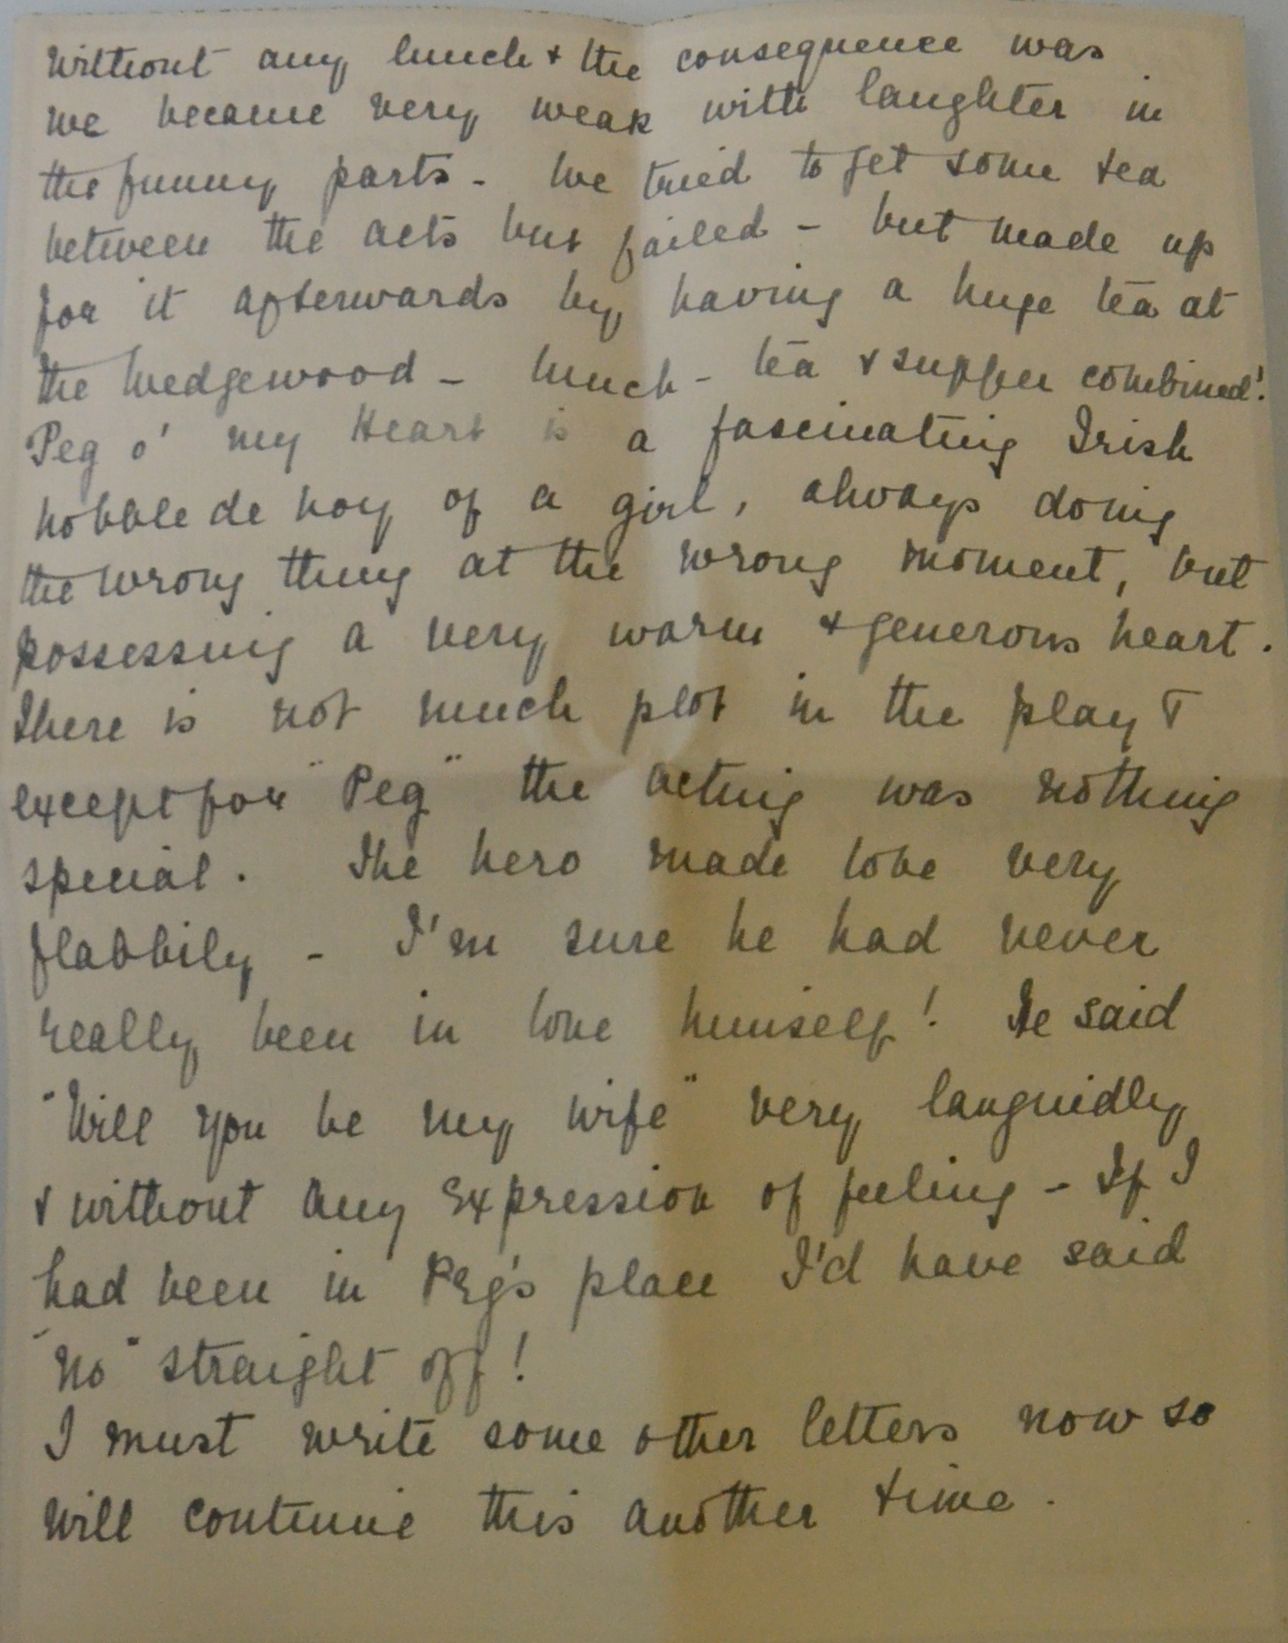 without any lunch & the consequence was
we became very weak with laughter in
the funny parts - We tried to get some tea
between the acts but failed - but made up
for it afterwards by having a huge tea at
the Wedgewood - lunch - tea & supper combined!
Peg o' my Heart is a fascinating Irish
hobble de hoy of a girl, always doing
the wrong thing at the wrong moment, but
possessing a very warm & generous heart.
There is not much plot in the play &
except for "Peg" the acting was nothing
special. The hero made love very
flabbily - I'm sure he had never
really been in love himself! He said
"Will you be my wife" very languidly
& without any expression of feeling - If I
had been in Peg's place I'd have said
"No" straight off!
I must write some other letters now so
will continue this another time.